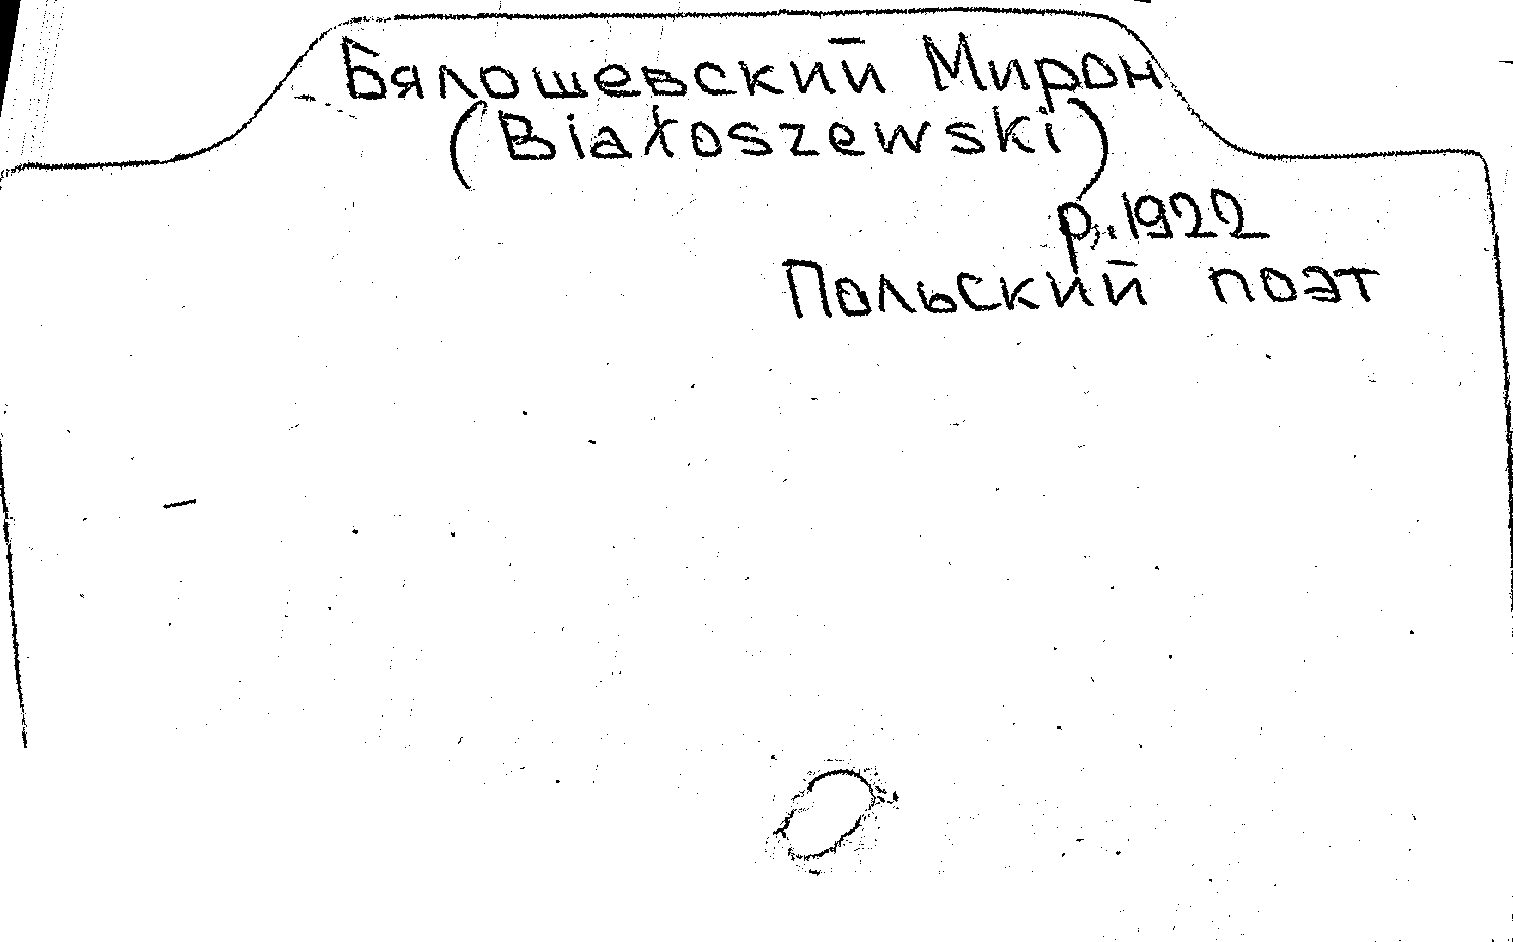 Бялошевский Мирон
(Białoszewski)
р. 1922
Польский поэт